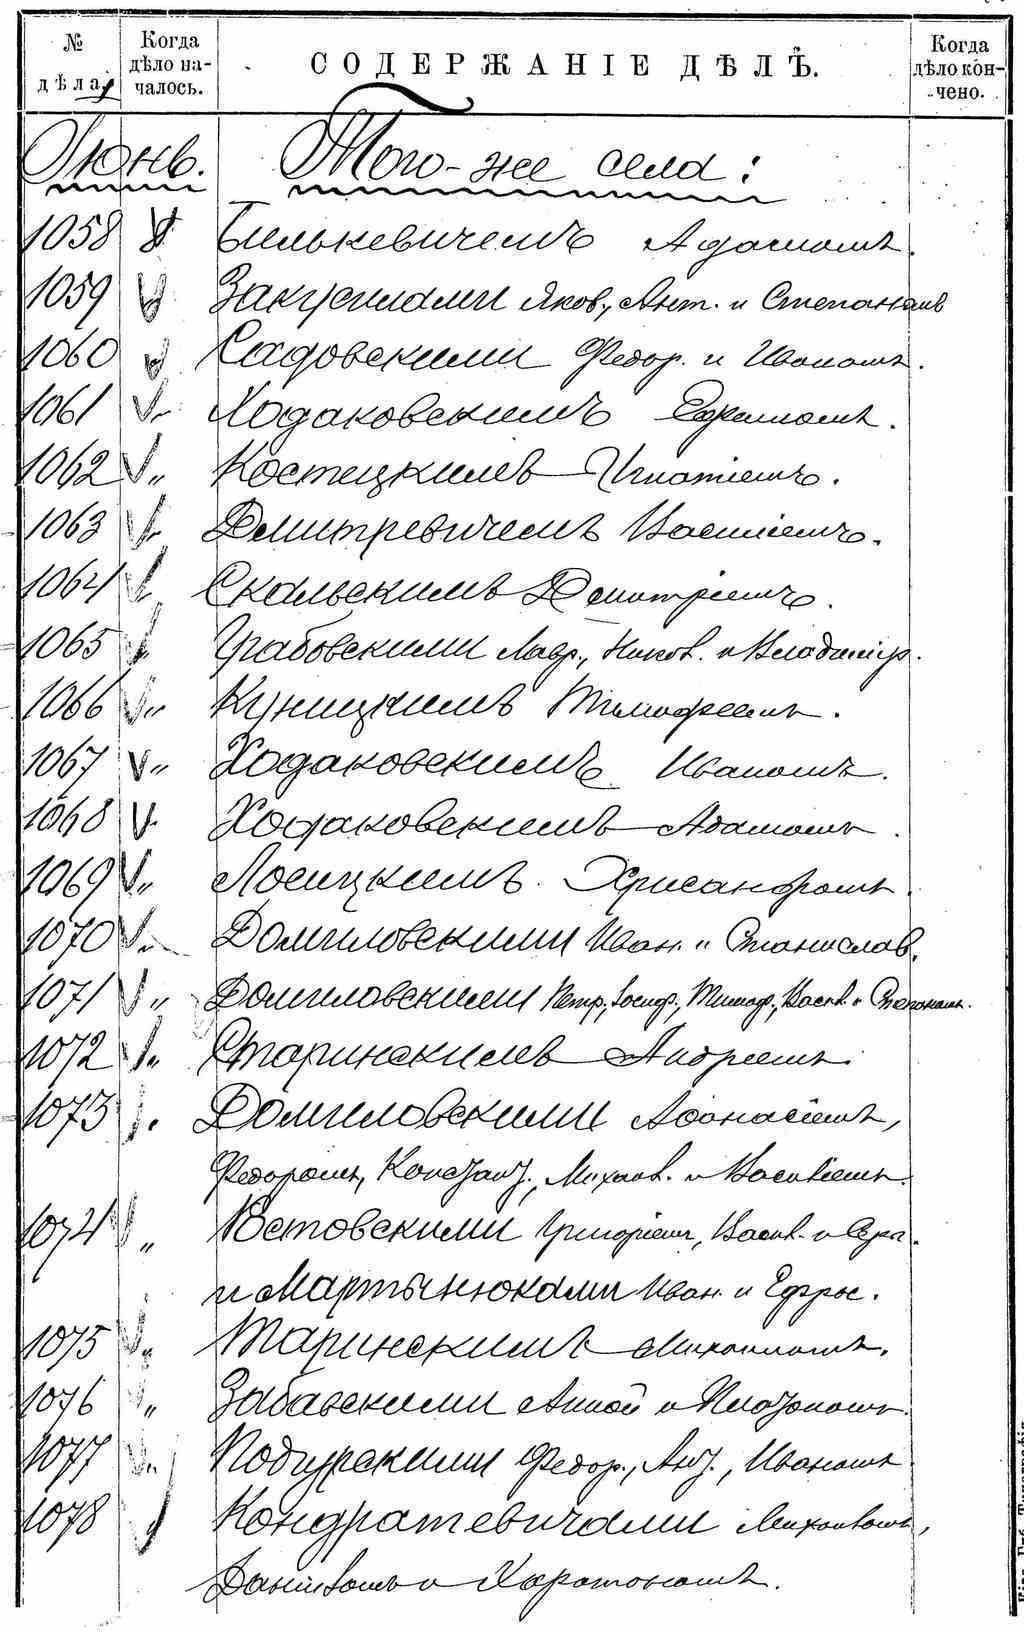 № дѣла
Когда дѣло началось.
СОДЕРЖАНІЕ ДѢЛЪ.
Когда дѣло кончено.
Іюнь. Того-же села:
1058 Билькевичемъ Адамомъ.
1059 Закусилами Яков., Ант. и Степаномъ
1060 Садовскими Федор. и Иваномъ.
1061 Ходаковскимъ Ефремомъ.
1062 " Костецкимъ Игнатіемъ.
1063 Дмитревичемъ Василіемъ.
1064 Скальскимъ Дмитріемъ.
1065 Грабовскими Лавр., Никол. и Владимір.
1066 " Куницкимъ Тимофеемъ.
1067 " Ходаковскимъ Иваномъ.
1068 Ходаковскимъ Адамомъ.
1069 " Лосицкимъ Хрисанфомъ.
1070 " Домиловскими Иван. и Станислав.
1071 " Домиловскими Петр., Іосиф., Тимоф., Васил. и Степаномъ.
1072 " Старинскимъ Андреемъ.
1073 Домиловскими Афанасіемъ,
Федоромъ, Констант., Михаил. и Василіемъ.
1074 " Ростовскими Григоріемъ, Васил. и
и Мартынюками Иван. и Ефрос.
1075 " Таринскимъ Михаиломъ.
1076 " Забавскими Анной и Платономъ.
1077 " Подгурскими Федор., Ант., Иваномъ
1078 Кондратевичами Михаиломъ,
Даніиломъ и Харитономъ.